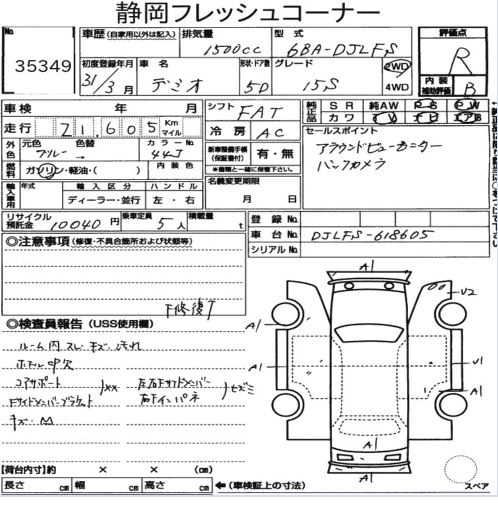 静岡フレッシュコーナー
No. 35349
車歴 (自家用以外は記入)
排気量 1500cc
型式 6BA-DJLFS
評価点 R
初度登録年月 31/3月
車名 デミオ
形状・ドア数 5D
グレード 15S
2WD
4WD
内装補助評価 B
車検 年 月
走行 21,605 Km マイル
シフト FAT
純正品 SR 純AW PS PW
カワ TV ナビ エアB
外色 元色 ブルー 色替 カラーNo. 44J
冷房 AC
セールスポイント
アラウンドビューモニター
バックカメラ
燃料 ガソリン・軽油・( ) 内装色
新車整備手帳 (保証書付) 有・無
※書類と一緒に保管下さい。
輸入車用 年式 輸入区分 ハンドル
ディーラー・並行 左・右
名義変更期限
月 日
リサイクル預託金 10040円
乗車定員 5人
積載量 t
登録No.
車台No. DJLFS-618605
シリアルNo.
◎注意事項 (修復・不具合箇所および状態等)
下修復了
◎検査員報告 (USS使用欄)
ルーム内スレ キズ 汚れ
ホイル中欠
コアサポート
Fサイドメンバーブラケット
XX
左右Fサイドメンバー
右Fインパネ
キズ
A1
A1
A1
A1
A1
A1
U2
U1
【荷台内寸】約 × × (cm)
長さ cm 幅 cm 高さ cm
←(車検証上の寸法)
スペア